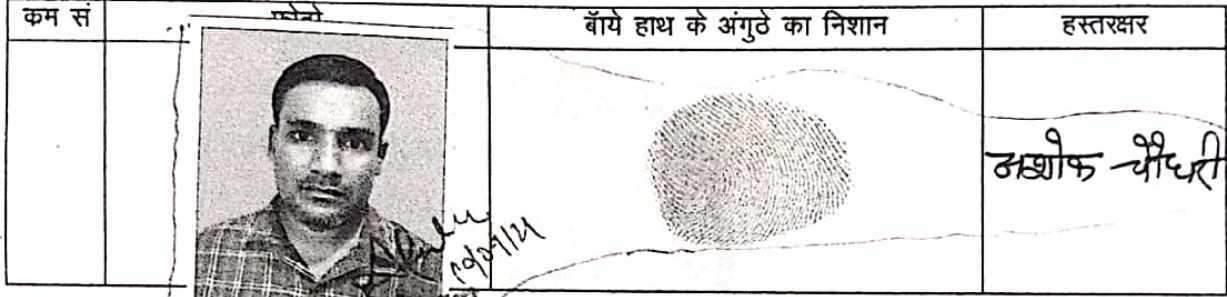 कम सं फोटो बॉये हाथ के अंगुठे का निशान हस्तरक्षर
अशोक चौधरी